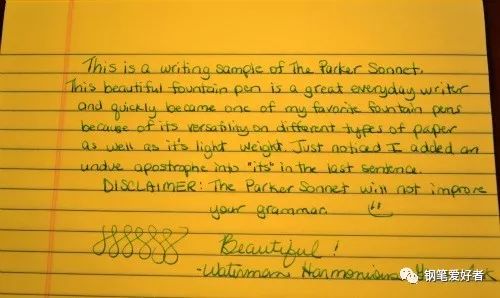 This is a writing sample of The Parker Sonnet.
This beautiful fountain pen is a great everyday writer
and quickly became one of my favorite fountain pens
because of its versatility on different types of paper
as well as it's light weight. Just noticed I added an
undue apostrophe into "its" in the last sentence.
DISCLAIMER: The Parker Sonnet will not improve
your grammar.
Beautiful!
-Waterman Harmonious
钢笔爱好者